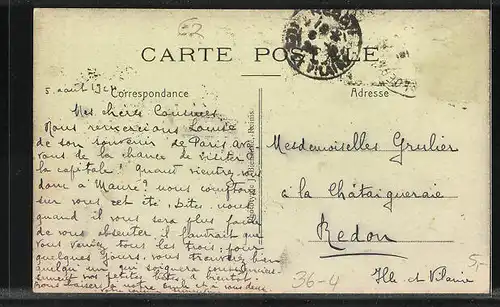 CARTE POSTALE
Correspondance
Adresse
5 août 192
Mes chères Cousines
Nous remercions Louise
de son souvenir de Paris
vous de la chance de visiter
la capitale ! Quant viendrez vous
donc à Maure ? nous comptons
sur vous cet été. Dites nous
quand il vous sera plus facile
de vous absenter il faudrait que
vous veniez tous les trois, pour
quelques jours. vous trouverez bien
quelqu'un qui soignera
vos petites bêtes, à bientôt
Mesdemoiselles Grulier
à la Châtaigneraie
Redon
Ille et Vilaine
36-4
5,-